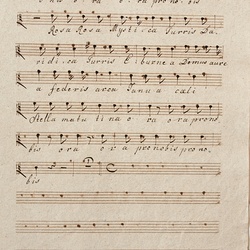 nis o - ra o - ra pro no - bis
Rosa Rosa Mysti - ca Turris Da -
vidi - ca Turris Eburnea Domus aure
a federis arca Janua cœli
Stella matutina o - ra o - ra pro no -
bis ora o - ra pro nobis pro no -
bis